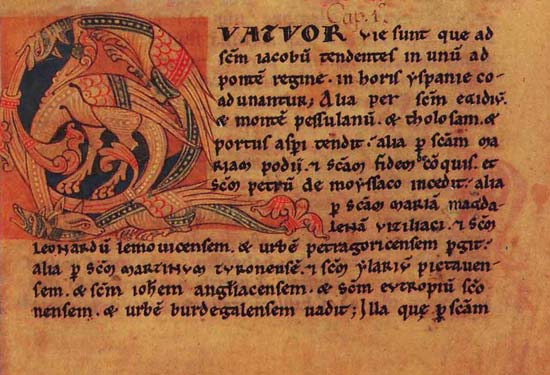 Cap. I.
QVATVOR vie sunt que ad
scm iacobũ tendentes in unũ ad
pontẽ regine · in horis yspanie co-
adunantur; Alia per scm egidiũ
& montẽ pessulanũ · & tholosam · &
portus aspi tendit · alia p scam ma
riam podij · & scam fidem cõquis · et
scm petrũ de moyssaco incedit · alia
p scam mariã magda
lenã viziliaci · & scm
leonardũ lemovicensem · & urbẽ petragoricensem pgit ·
alia p scm martinum turonensẽ · & scm ylariũ pictaven-
sem · & scm iohem angliacensem · & scm eutropiũ sco
nensem · & urbẽ burdegalensem vadit; Illa quę p scam